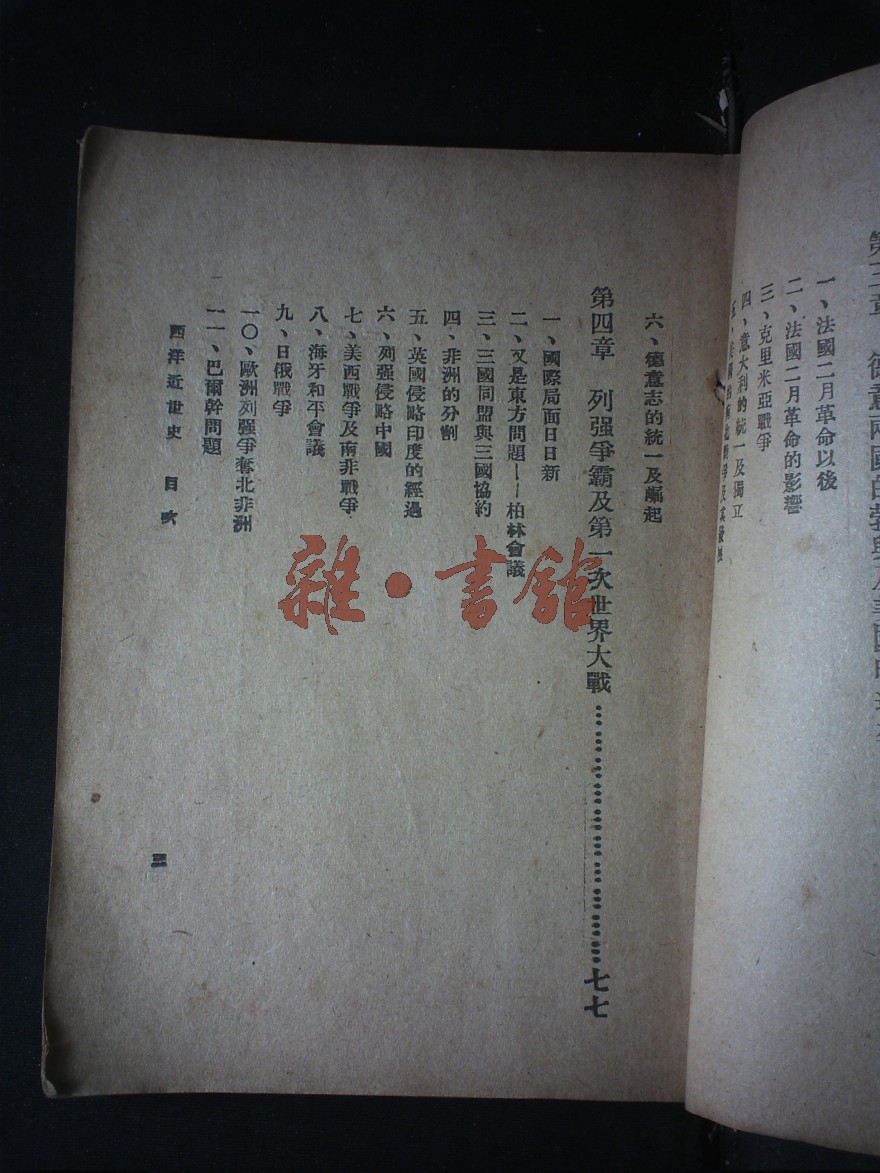 一、法國二月革命以後
二、法國二月革命的影響
三、克里米亞戰爭
四、意大利的統一及獨立
六、德意志的統一及崛起
第四章 列强爭霸及第一次世界大戰…………………………七七
一、國際局面日日新
二、又是東方問題——柏林會議
三、三國同盟與三國協約
四、非洲的分割
五、英國侵略印度的經過
六、列强侵略中國
七、美西戰爭及南非戰爭
八、海牙和平會議
九、日俄戰爭
一〇、歐洲列强爭奪北非洲
一一、巴爾幹問題
西洋近世史 目次
三
雜·書館